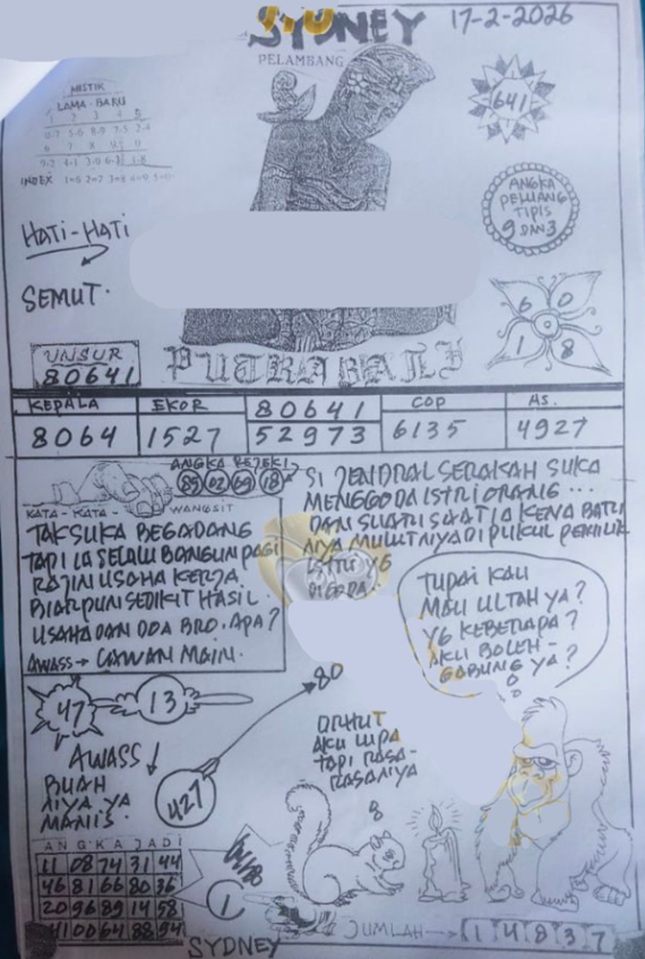 SYDNEY 17-2-2026
PELAMBANG
MISTIK
LAMA - BARU
1 2 3 4 5
0-7 5-6 8-9 7-5 2-4
6 7 8 9 0
9-2 4-1 3-0 6-3 1-8
INDEX 1=6 2=7 3=8 4=9 5=0
641
ANGKA
PELUANG
TIPIS
9 DAN 3
HATI-HATI
SEMUT.
6 0
1 8
UNSUR
80641
PUTRA BALI
KEPALA EKOR 80641 COP AS.
8064 1527 52973 6135 4927
ANGKA REJEKI
89 02 69 18
KATA - KATA - WANGSIT
TAK SUKA BEGADANG
TAPI IA SELALU BANGUN PAGI
RAJIN USAHA KERJA.
BIARPUN SEDIKIT HASIL.
USAHA DAN DOA BRO. APA?
AWASS → CAWAN MAIN.
SI JENDRAL SERAKAH SUKA
MENGGODA ISTRI ORANG ...
DAN SUATU SAAT IA KENA BATU
NIYA MULUTNIYA DI PUKUL PEMILIK
ISTRI YG
DIGODA..
TUPAI KAU
MAU ULTAH YA?
YG KEBERAPA?
AKU BOLEH -
GABUNG YA?
47 13
80
427
AWASS ↓
BUAH
NIYA YA
MANIS.
AKU LUPA
TAPI RASA-
RASANIYA
8
ANGKA JADI
11 08 74 31 44
46 81 66 80 36
20 96 89 14 58
41 00 64 88 94
1
SYDNEY
JUMLAH → 1 4 8 3 7